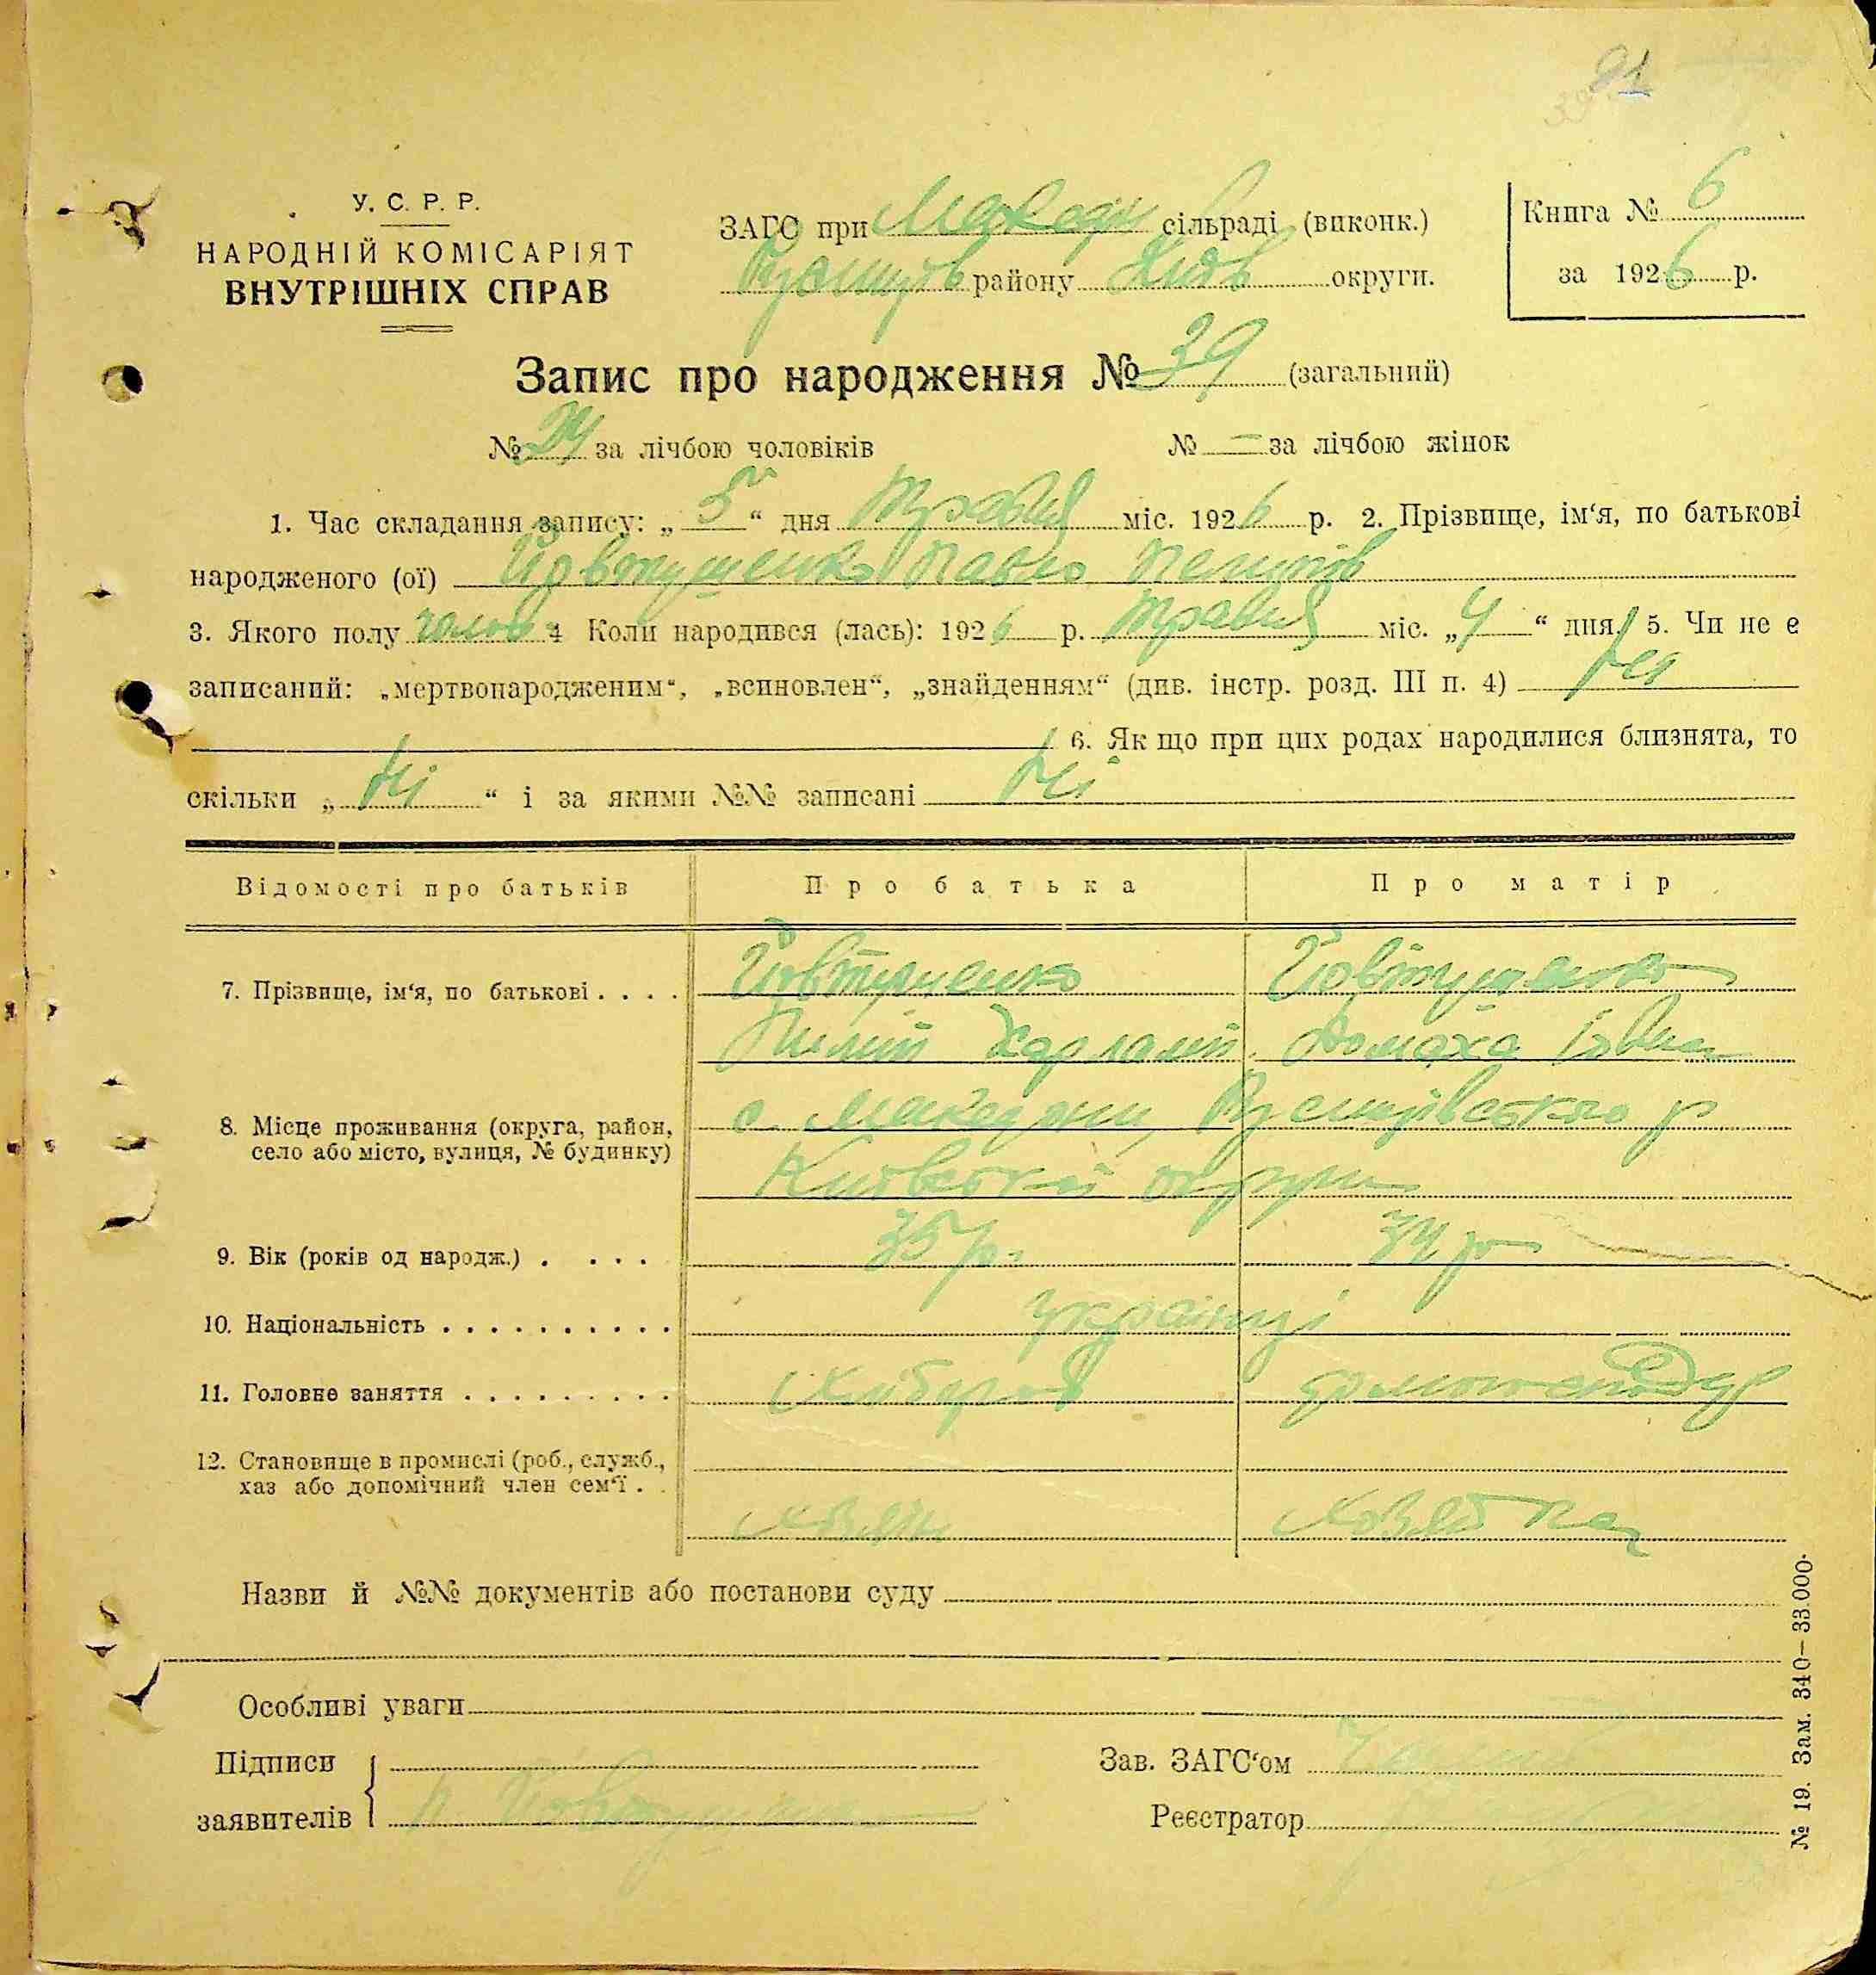 91
39
У. С. Р. Р.
НАРОДНІЙ КОМІСАРІЯТ
ВНУТРІШНІХ СПРАВ
ЗАГС при Макед сільраді (виконк.)
Ржищів району Київ округи.
Книга № 6
за 1926 р.
Запис про народження № 39 (загальний)
№ 24 за лічбою чоловіків № — за лічбою жінок
1. Час складання запису: „ 5 “ дня Травня міс. 1926 р. 2. Прізвище, ім‘я, по батькові
народженого (ої) Йовтушенко Павло Пилипів
3. Якого полу чолов 4 Коли народився (лась): 1926 р. Травня міс. „ 4 “ дня. 5. Чи не є
записаний: „мертвонародженим“, „всиновлен“, „знайденням“ (див. інстр. розд. III п. 4) Ні
6. Як що при цих родах народилися близнята, то
скільки „ Ні “ і за якими №№ записані Ні
Відомості про батьків Про батька Про матір
7. Прізвище, ім‘я, по батькові . . . . Йовтушенко Йовтушенко
Пилип Харлами. Домаха Іовна
8. Місце проживання (округа, район,
село або місто, вулиця, № будинку)
с. Македони, Ржищівського р
Київської округи
9. Вік (років од народж.) . . . . 35 р. 34 р
10. Національність . . . . . . . . . . українці
11. Головне заняття . . . . . . . . . Хлібороб домогосподар
12. Становище в промислі (роб., служб.,
хаз або допомічний член сем‘ї . .
хозяїн хозяйка
Назви й №№ документів або постанови суду
Особливі уваги
Підписи
заявителів П Йовтушенко
Зав. ЗАГС‘ом
Реєстратор
№ 19. Зам. 340—33.000.